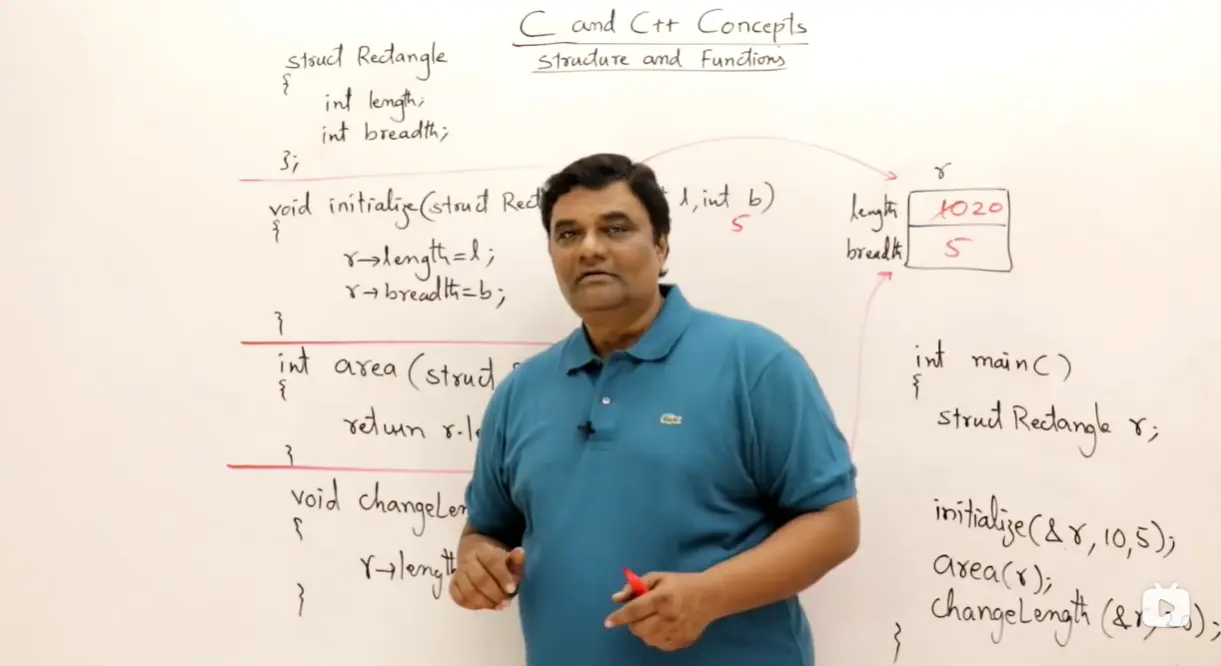 C and C++ Concepts
Structure and Functions
struct Rectangle
{
int length;
int breadth;
};
void initialize(struct Rect l, int b)
5
{
r→length=l;
r→breadth=b;
}
int area (struct
{
return r.le
}
void changeLen
{
r→length
}
r
length 1020
breadth 5
int main()
{
struct Rectangle r;
initialize(&r, 10,5);
area(r);
changeLength (&r,
}